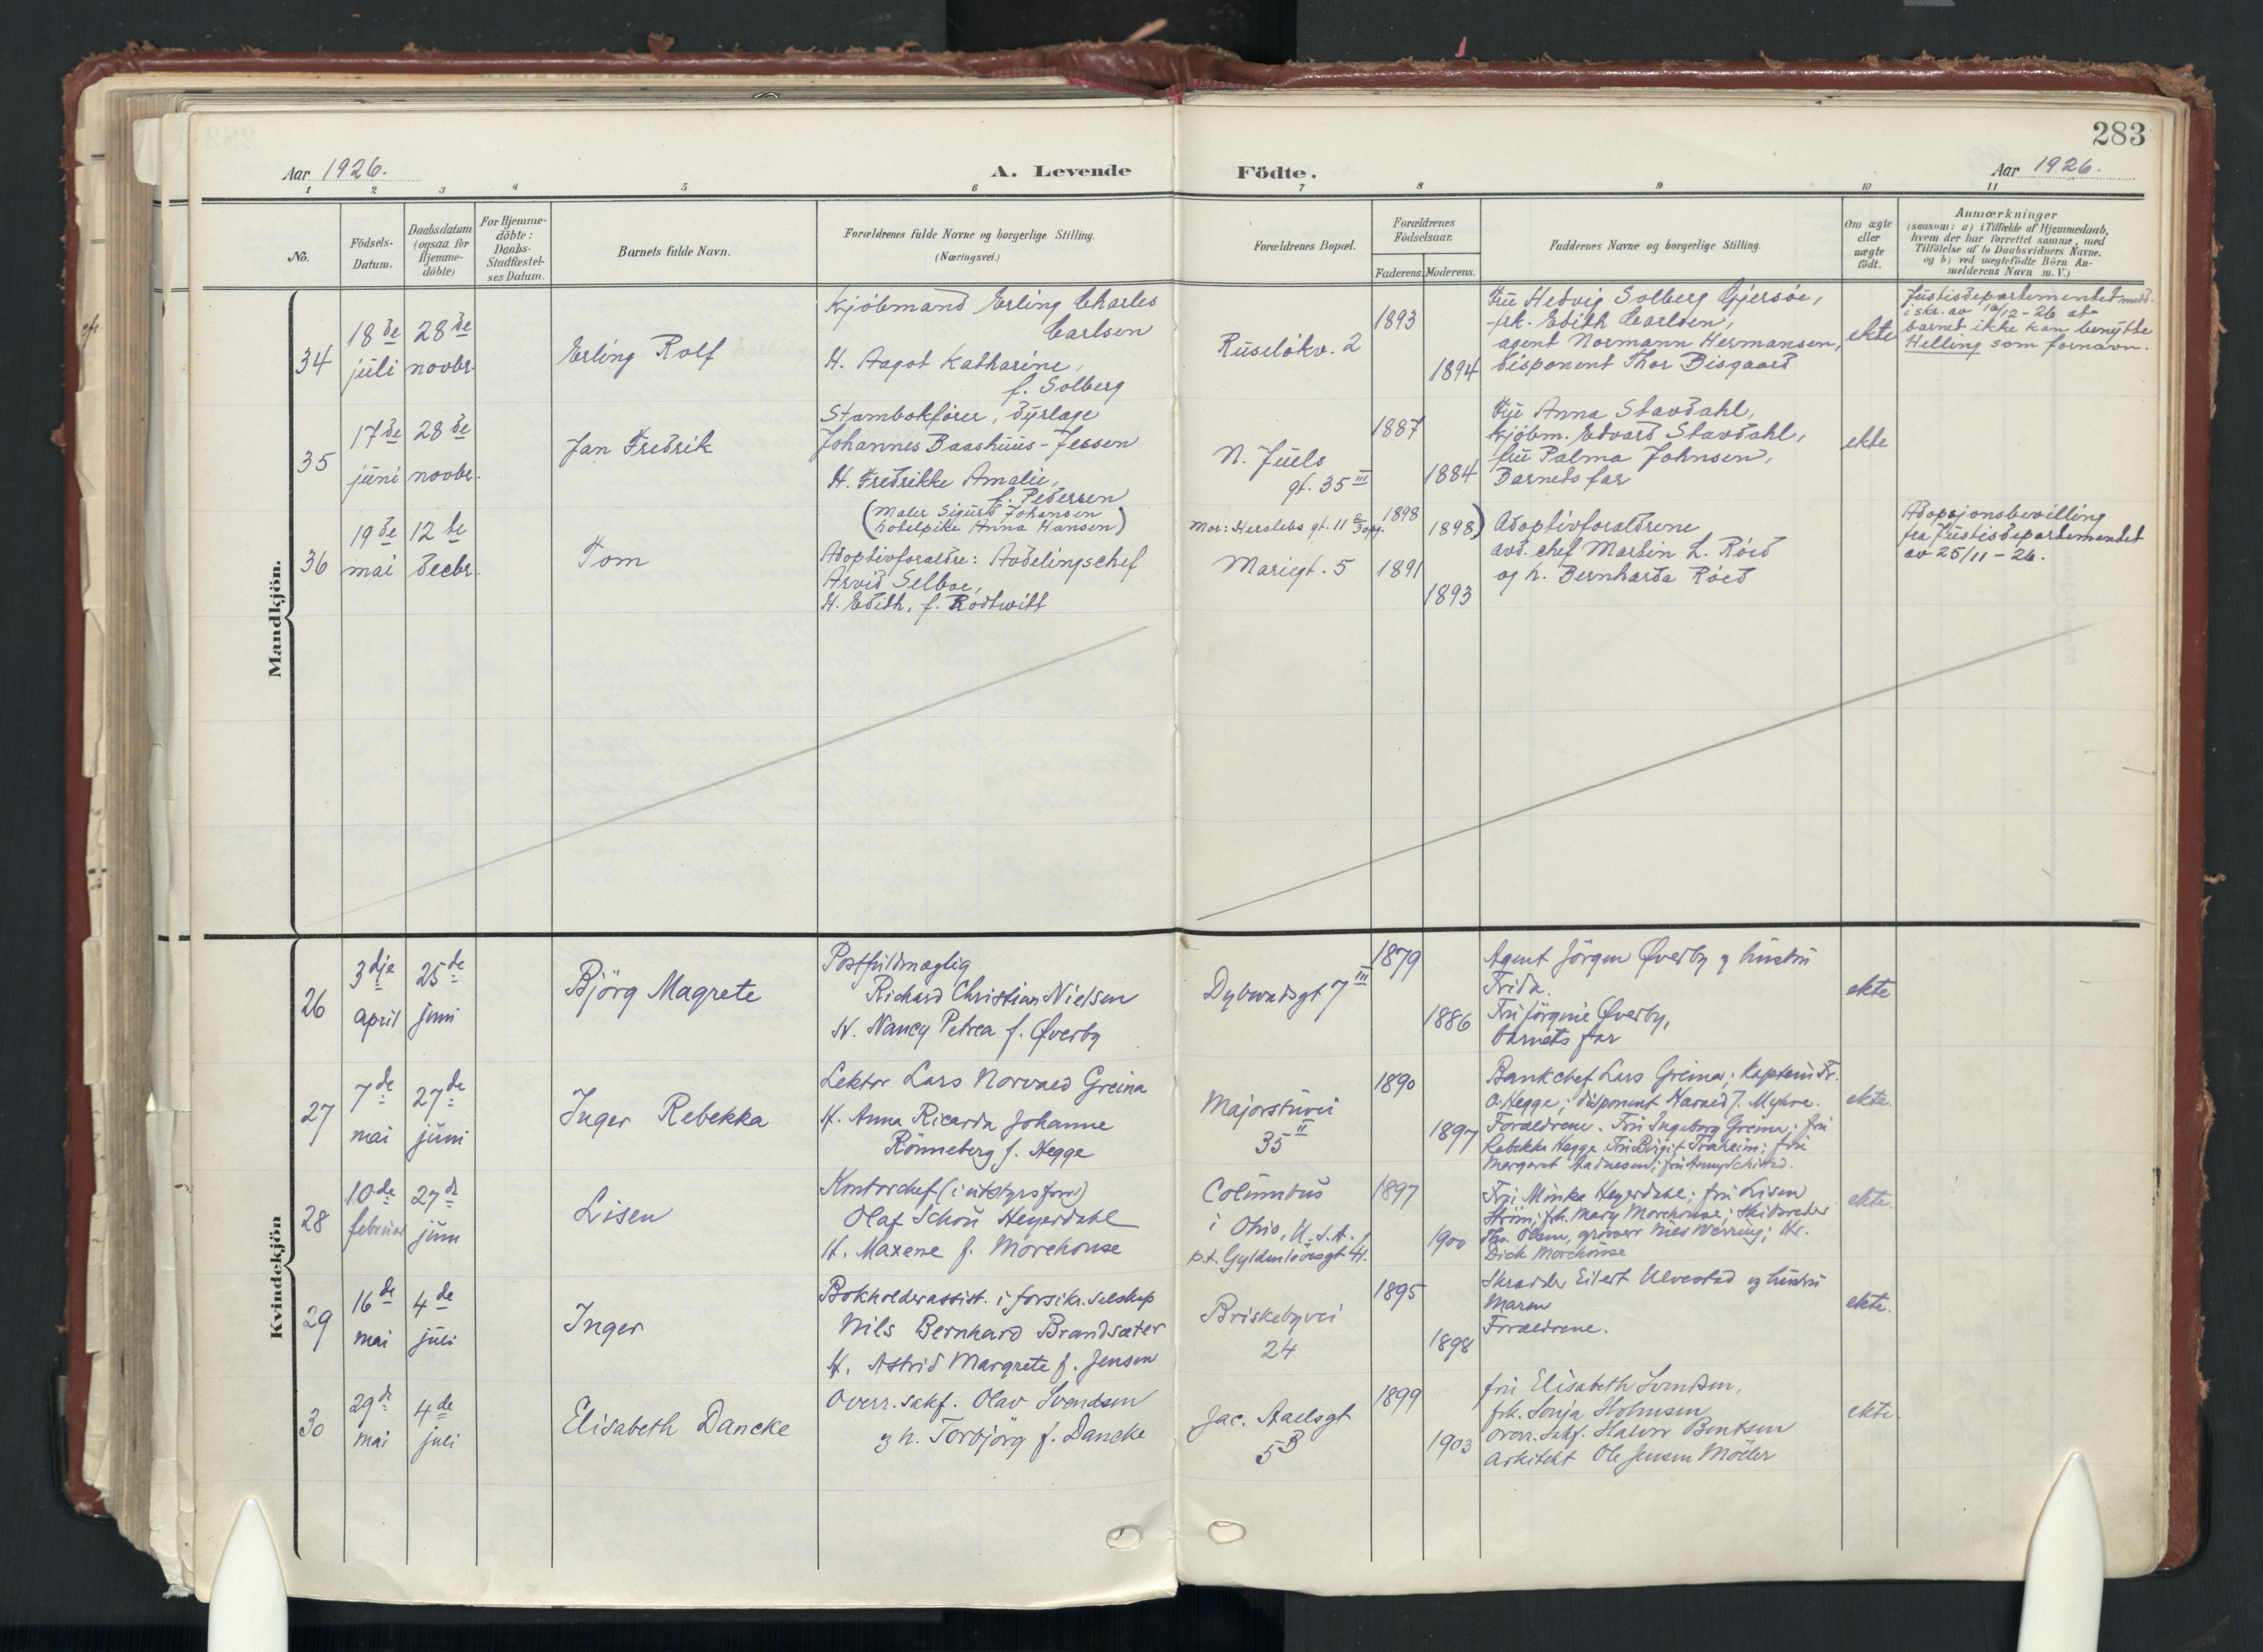 283
Aar 1926.
A. Levende Födte.
Aar 1926.
1 2 3 4 5 6 7 8 9 10 11
No.
Födsels-
Datum.
Daabsdatum
(ogsaa for
Hjemme-
döbte)
For Hjemme-
döbte:
Daabs-
Stadfæstel-
ses Datum.
Barnets fulde Navn.
Forældrenes fulde Navne og borgerlige Stilling.
(Næringsvei.)
Forældrenes Bopæl.
Forældrenes
Födselsaar.
Faderens. Moderens.
Faddernes Navne og borgerlige Stilling.
Om ægte
eller
uægte
födt.
Anmærkninger
(saasom: a) i Tilfælde af Hjemmedaab,
hvem der har forrettet samme, med
Tilföielse af to Daabsvidners Navne,
og b) ved uægtefödte Börn An-
melderens Navn m. V.)
Mandkjön.
34
18de
juli
28de
novbr.
Erling Rolf
Kjöbmand Erling Charles
Carlsen
H. Aagot Katharine,
f. Solberg
Ruselökv. 2
1893
1894
Fru Hedvig Solberg Gjersöe,
frk. Edith Carlsen,
agent Normann Hermansen,
disponent Thor Bisgaard
ekte
Justisdepartementet medd.
i skr. av 10/12-26 at
barnet ikke kan benytte
Helling som fornavn.
35
17de
juni
28de
novbr.
Jan Fredrik
Stambokförer, dyrlæge
Johannes Baashuus-Jessen
H. Fredrikke Amalie,
f. Pedersen
N. Juels
gt. 35 III
1887
1884
Fru Anna Stavdahl,
kjöbm. Edvard Stavdahl,
fru Palma Johnsen,
Barnets far
ekte
36
19de
mai
12te
decbr.
Tom
(Maler Sigurd Johansen
hotelpike Anna Hansen)
Adoptivforældre: Avdelingschef
Arvid Selboe,
H. Edith, f. Rodtwitt
Mor: Herslebs gt. 11 2 opg.
Mariegt. 5
1898
1898)
1891
1893
Adoptivforældrene
avd. chef Martin L. Röed
og h. Bernharda Röed
Adopsjonsbevilling
fra Justisdepartementet
av 25/11-26.
Kvindekjön
26
3dje
april
25de
juni
Björg Magrete
Postfuldmægtig
Richard Christian Nielsen
H. Nancy Petrea f. Øverby
Dybwadsgt 7 III
1879
1886
Agent Jörgen Øverby og hustru
Frida.
Fru Jörgine Øverby,
barnets far
ekte
27
7de
mai
27de
juni
Inger Rebekka
Lektor Lars Norvald Greina
H. Anna Ricarda Johanne
Rönneberg f. Hegge
Majorstuvei
35 II
1890
1897
Bankchef Lars Greina; Kaptein Fr.
O. Hegge; disponent Harald J. Myhre.
Forældrene. Fru Ingeborg Greina; fru
Rebekka Hegge. Fru Birgit Træheim; fru
Margaret ; fru Anny .
ekte.
28
10de
februar
27de
juni
Lisen
Kontorchef (i utstyrsforr.)
Olaf Schou Heyerdahl
H. Maxene f. Morehouse
Columbus
i Ohio, U.S.A.,
p.t. Gyldenlövesgt 41.
1897
1900
Fru Minka Heyerdahl; fru Lisen
Ström; frk. Mary Morehouse; Skibsreder
Ths. Olsen, grosserer Niels Werring; Hr.
Dick Morehouse
ekte.
29
16de
mai
4de
juli
Inger
Bokholderassist. i forsikr. selskap
Nils Bernhard Brandsæter
H. Astrid Margrete f. Jensen
Briskebyvei
24
1895
1898
Skrædder Eilert Ulvestad og hustru
Maren
Forældrene.
ekte.
30
29de
mai
4de
juli
Elisabeth Dancke
Overr. sakf. Olav Svendsen
og h. Torbjörg f. Dancke
Jac. Aallsgt
5B
1899
1903
Fru Elisabeth Svendsen,
frk. Sonja Holmsen
overr. sakf. Halvor Bentsen
Arkitekt Ole Jensen Möller
ekte.